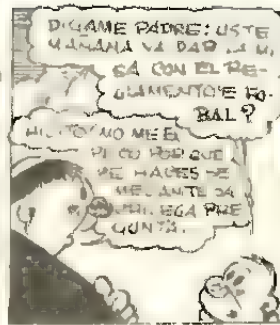 DIGAME PADRE: USTE
MAÑANA VA DAR LA MI
SA CON EL RE-
GLAMENTO'E FO-
BAL?
HIJITO: NO ME EX
PLICO POR QUE
ME HACES SE
MEJANTE DA
PRE
GUNTA.